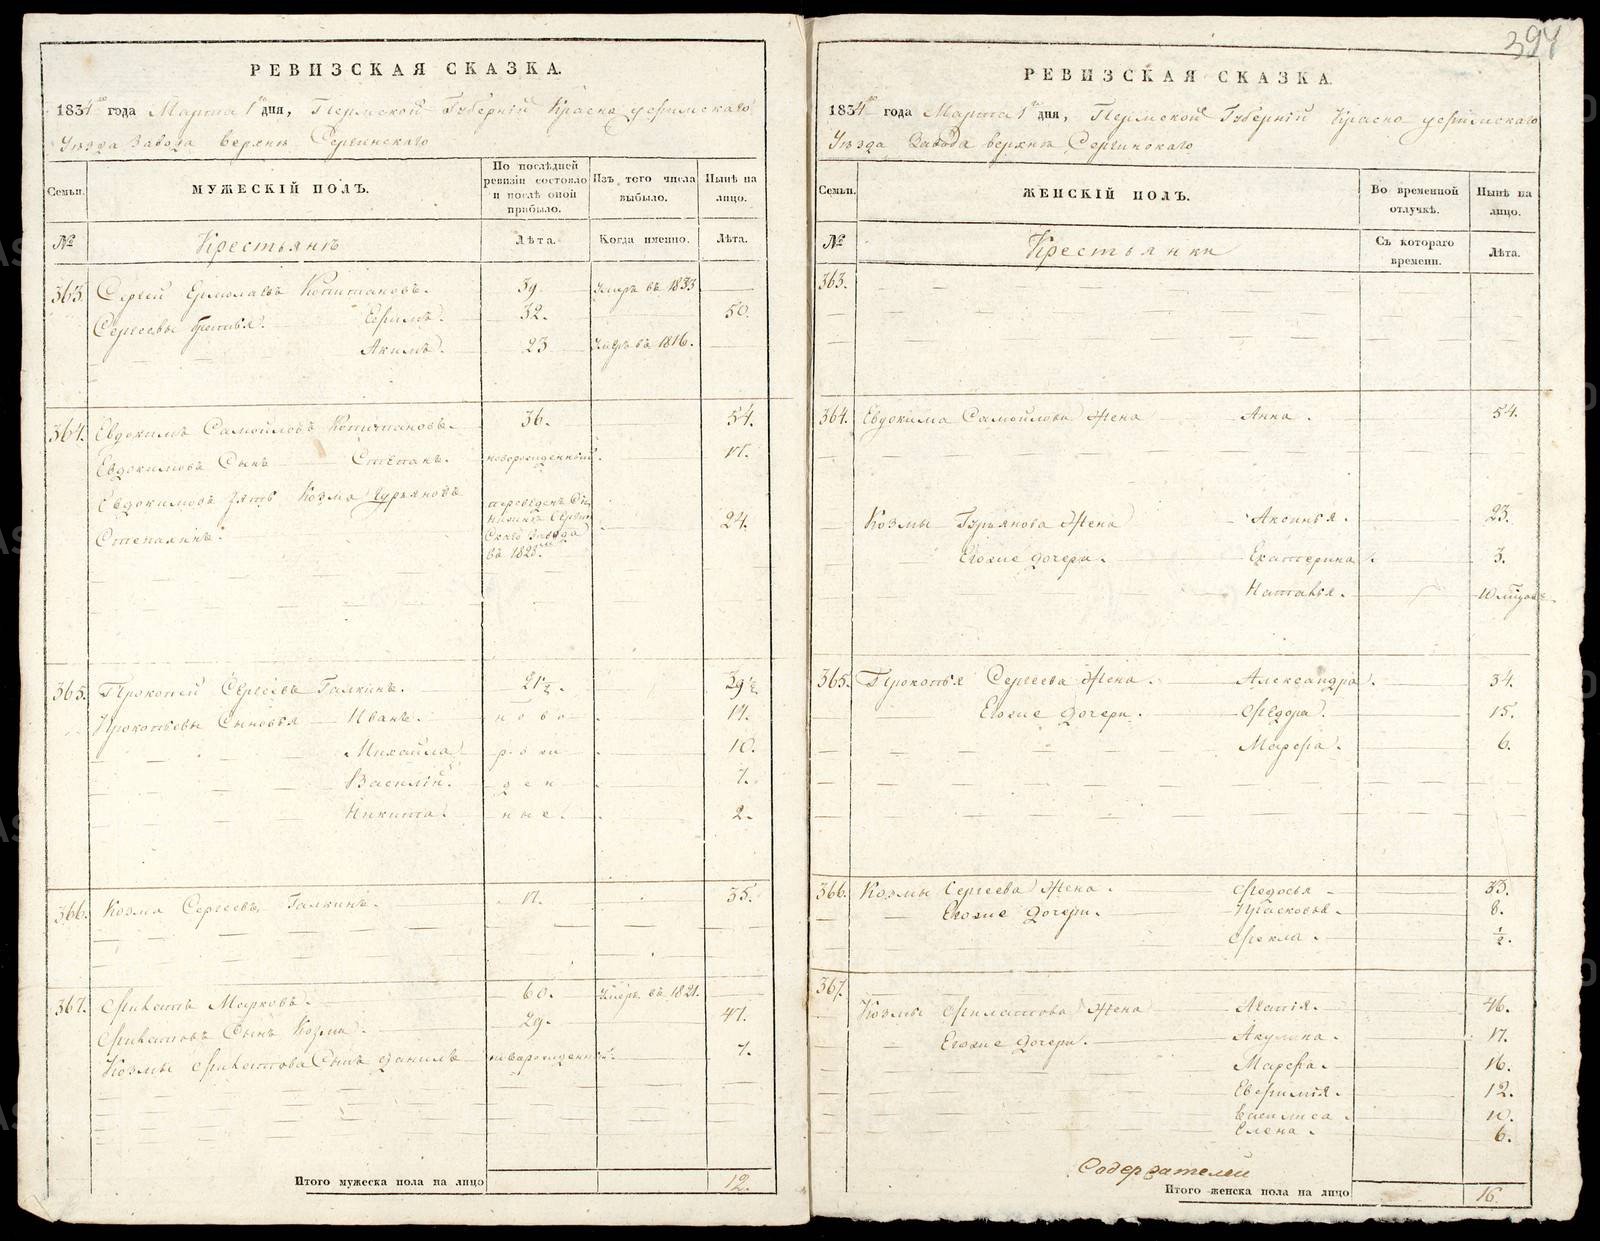 394
РЕВИЗСКАЯ СКАЗКА.
1834го года Марта 1го дня, Пермской Губернiи Красноуфимскаго
Уѣзда Завода Верхне Сергинскаго
Семьи.
МУЖЕСКIЙ ПОЛЪ.
По послѣдней ревизiи состояло и послѣ оной прибыло.
Изъ того числа выбыло.
Нынѣ на лицо.
№
Крестьянъ
Лѣта.
Когда именно.
Лѣта.
363. Сергей Ермолаевъ 39. Умеръ въ 1833
Сергеевы братья. Ефимъ. 32. 50.
Акимъ. 23 Умеръ въ 1816.
364. Евдокимъ Самойловъ 36. 54.
Евдокимовъ Сынъ Степанъ. новорожденный. 17.
Евдокимовъ зять Козма Гурьяновъ переведенъ из
Нижне Сергин
скаго завода 24.
въ 1828.
365. Прокопей Сергеевъ Галкинъ. 21½. 39½
Прокопьевы Сыновья Иванъ. ново 14.
Михайла рож 10.
Василiй. ден 7.
Никита. ные. 2.
366. Козма Сергеевъ Галкинъ. 17. 35.
367. Филатъ Марковъ. 60. Умеръ въ 1821.
Филатовъ Сынъ Козма. 29. 47.
Козмы Филатова Сынъ Данилъ новорожденной. 7.
Итого мужеска пола на лицо 12.
РЕВИЗСКАЯ СКАЗКА.
1834го года Марта 1го дня, Пермской Губернiи Красноуфимскаго
Уѣзда Завода Верхне Сергинскаго
Семьи.
ЖЕНСКIЙ ПОЛЪ.
Во временной отлучкѣ.
Нынѣ на лицо.
№
Крестьянки
Съ котораго времени.
Лѣта.
363.
364. Евдокима Самойлова Жена Анна. 54.
Козмы Гурьянова Жена Аксинья. 23.
Егоже дочери. Екатерина. 3.
Наталья. 10
365. Прокопья Сергеева Жена. Александра. 34.
Егоже дочери. Федора. 15.
Марфа. 6.
366. Козмы Сергеева Жена. Федосья 33.
Егоже дочери. Прасковья. 8.
Фекла. ½.
367.
Козмы Филатова Жена Агапiя. 46.
Егоже дочери. Акулина. 17.
Марфа. 16.
Евфимiя. 12.
Василиса. 10.
Елена. 6.
Содержателей
Итого женска пола на лицо 16.